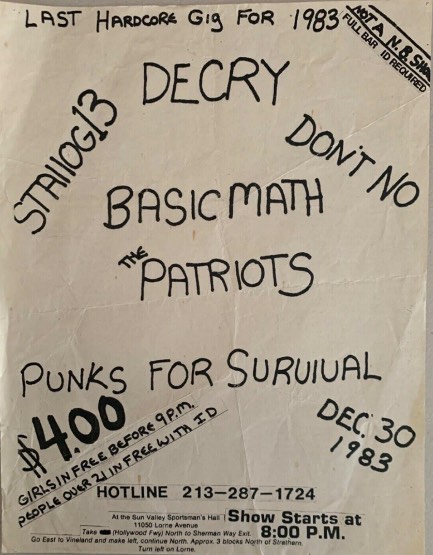 LAST HARDCORE GIG FOR 1983
NOT A N.B. SHOW
FULL BAR ID REQUIRED
DECRY
STALLOG13
DON'T NO
BASIC MATH
THE PATRIOTS
PUNKS FOR SURVIVAL
$4.00
GIRLS IN FREE BEFORE 9P.M.
PEOPLE OVER 21 IN FREE WITH ID
DEC. 30
1983
HOTLINE 213-287-1724
At the Sun Valley Sportsman's Hall
11050 Lorne Avenue
Show Starts at
8:00 P.M.
Take (Hollywood Fwy) North to Sherman Way Exit.
Go East to Vineland and make left, continue North. Approx. 3 blocks North of Strathern.
Turn left on Lorne.